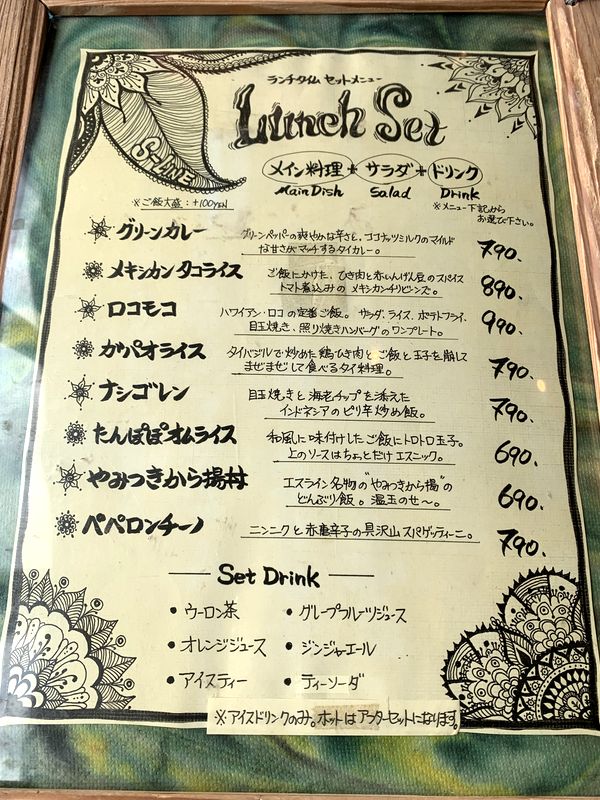 ランチタイム セットメニュー
Lunch Set
S-LINE
メイン料理+サラダ+ドリンク
Main Dish Salad Drink
※ご飯大盛:+100YEN
※メニュー下記から
お選び下さい。
グリーンカレー
グリーンペッパーの爽やかな辛さと、ココナッツミルクのマイルド
な甘さがマッチするタイカレー。
790.
メキシカンタコライス
ご飯にかけた、ひき肉と赤いんげん豆のスパイス
トマト煮込みの メキシカンチリビーンズ。
890.
ロコモコ
ハワイアン・ロコの定番ご飯。サラダ、ライス、ポテトフライ、
目玉焼き、照り焼きハンバーグのワンプレート。
990.
ガパオライス
タイバジルで炒めた鶏ひき肉とご飯と玉子を崩して
まぜまぜして食べるタイ料理。
790.
ナシゴレン
目玉焼きと海老チップを添えた
インドネシアのピリ辛炒め飯。
790.
たんぽぽオムライス
和風に味付けしたご飯にトロトロ玉子。
上のソースはちょっとだけエスニック。
690.
やみつきから揚丼
エスライン名物の"やみつきから揚"の
どんぶり飯。温玉のせ〜。
690.
ペペロンチーノ
ニンニクと赤唐辛子の具沢山スパゲッティーニ。
790.
Set Drink
・ウーロン茶
・グレープフルーツジュース
・オレンジジュース
・ジンジャエール
・アイスティー
・ティーソーダ
※アイスドリンクのみ。ホットはアフターセットになります。